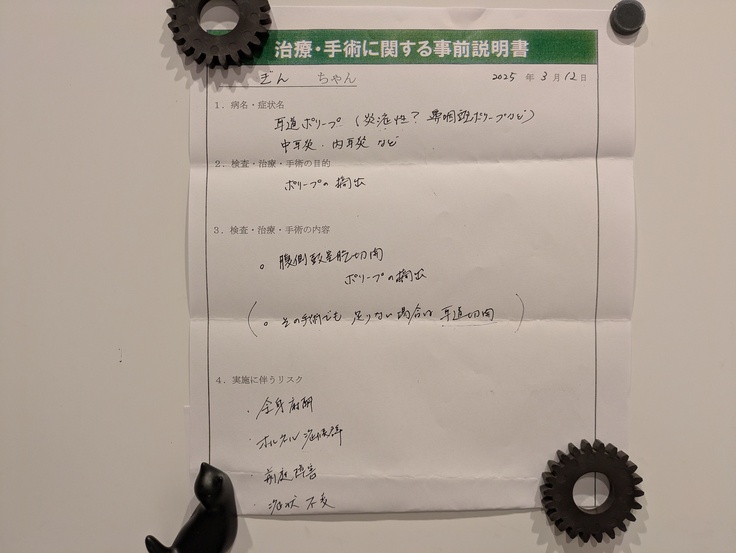 治療・手術に関する事前説明書
ぎん ちゃん 2025 年 3 月 12 日
1．病名・症状名
耳道ポリープ（炎症性？ 鼻咽頭ポリープなど）
中耳炎・内耳炎 など
2．検査・治療・手術の目的
ポリープの摘出
3．検査・治療・手術の内容
。腹側鼓室胞切開
ポリープの摘出
（。その手術でも 足りない場合は 耳道切開）
4．実施に伴うリスク
・全身麻酔
・ホルネル症候群
・前庭障害
・症状不変